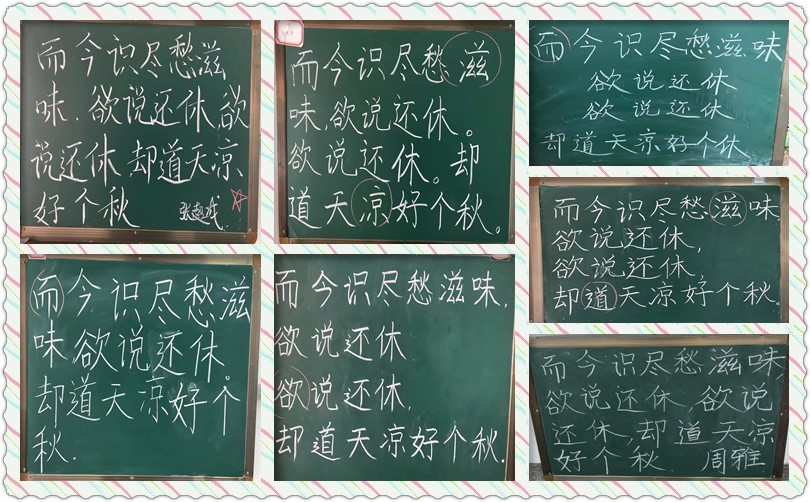 而今识尽愁滋
味,欲说还休,欲
说还休 却道天凉
好个秋
而今识尽愁滋
味,欲说还休。
欲说还休。却
道天凉好个秋。
而今识尽愁滋味
欲说还休
欲说还休
却道天凉好个休
而今识尽愁滋味
欲说还休,
欲说还休,
却道天凉好个秋.
而今识尽愁滋
味欲说还休。
却道天凉好个
秋.
而今识尽愁滋味,
欲说还休
欲说还休,
却道天凉好个秋.
而今识尽愁滋味,
欲说还休 欲说
还休,却道天凉
好个秋. 周雅